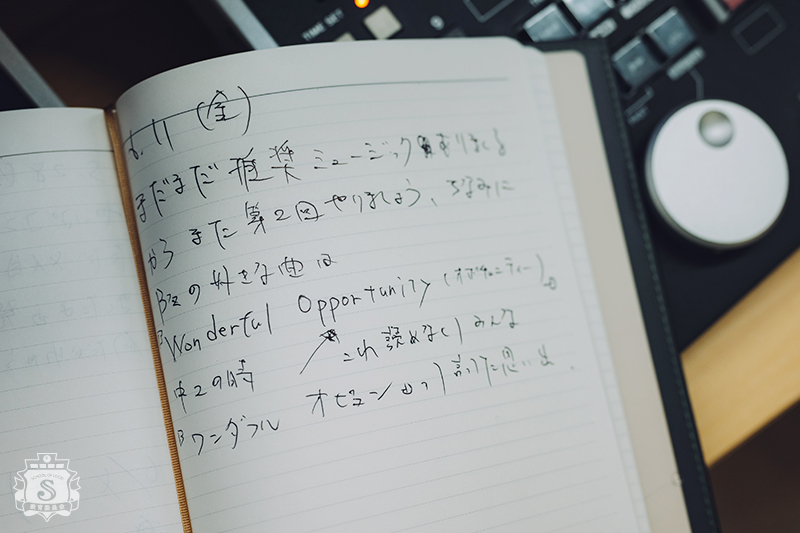 TIME SET
6.11 (金)
まだまだ推奨ミュージックありまくる
から また第2回やりましょう、ちなみに
B'zの好きな曲は
Wonderful Opportunity (オポチュニティー)
中2の時 これ読めなくて みんな
ワンダフル オピュンって言ってた思い出.
S